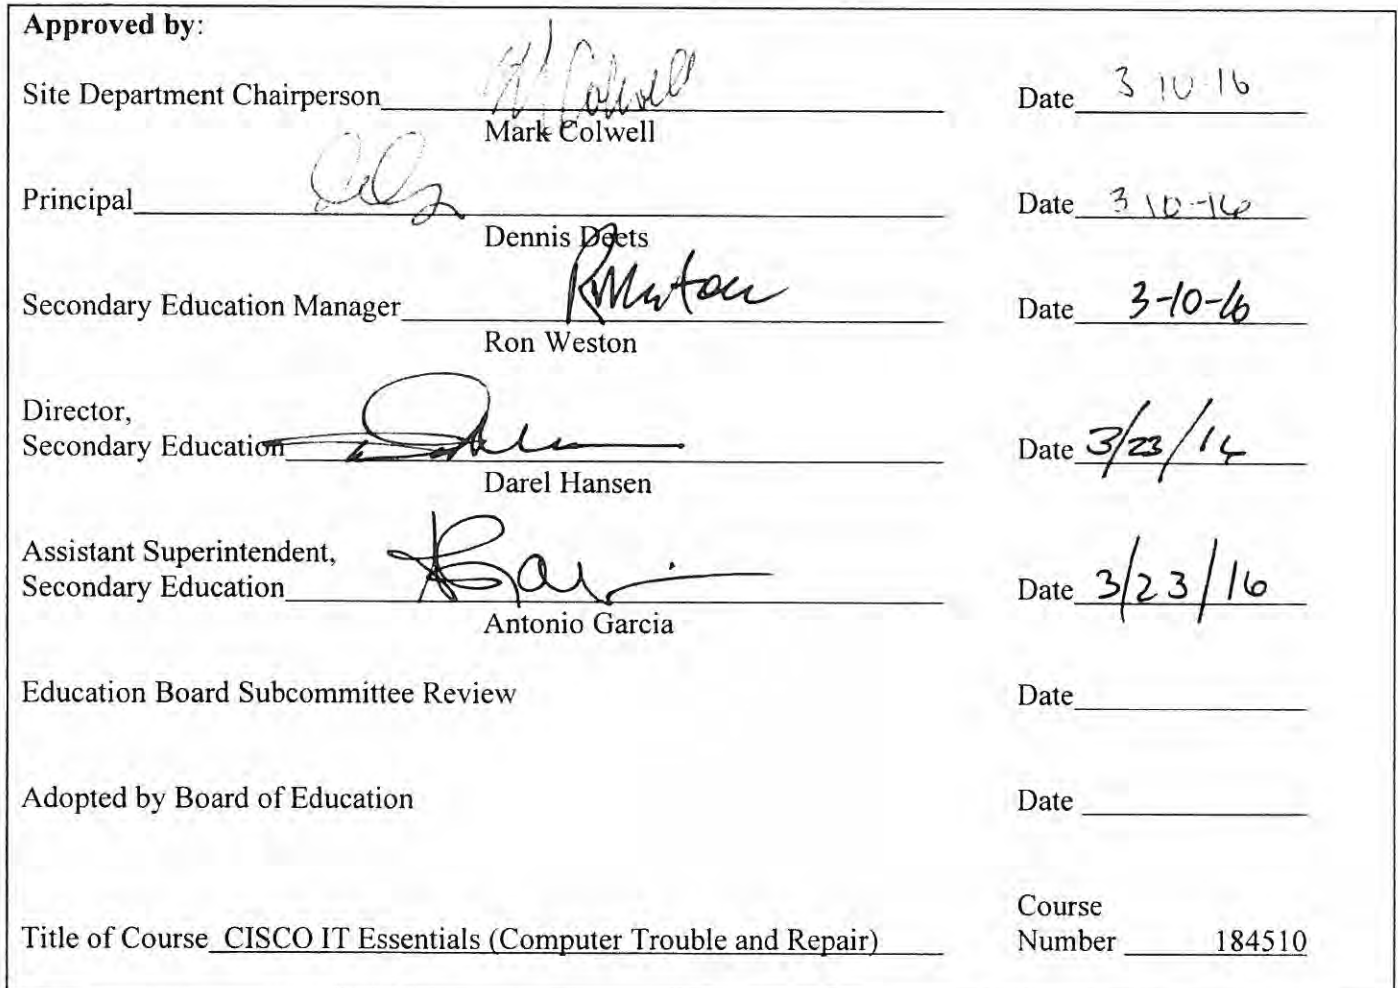 Approved by:
Site Department Chairperson M Colwell Date 3 10 16
Mark Colwell
Principal Date 3 10-16
Dennis Deets
Secondary Education Manager Date 3-10-16
Ron Weston
Director,
Secondary Education Date 3/23/16
Darel Hansen
Assistant Superintendent,
Secondary Education Date 3/23/16
Antonio Garcia
Education Board Subcommittee Review Date
Adopted by Board of Education Date
Course
Title of Course CISCO IT Essentials (Computer Trouble and Repair) Number 184510